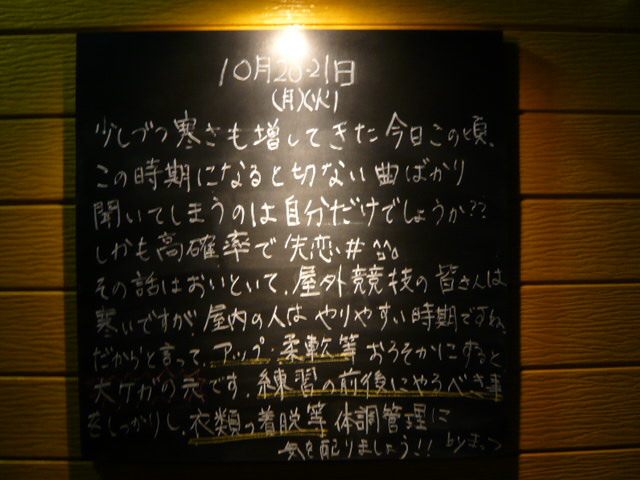 10月20·21日
(月)(火)
少しづつ寒さも増してきた今日この頃、
この時期になると切ない曲ばかり
聞いてしまうのは自分だけでしょうか??
しかも高確率で失恋#^^;。
その話はおいといて、屋外競技の皆さんは
寒いですが、屋内の人はやりやすい時期ですね。
だからと言って、アップ・柔軟等おろそかにすると
大ケガの元です。練習の前後にやるべき事
をしっかりし、衣類の着脱等体調管理に
気を配りましょう!!